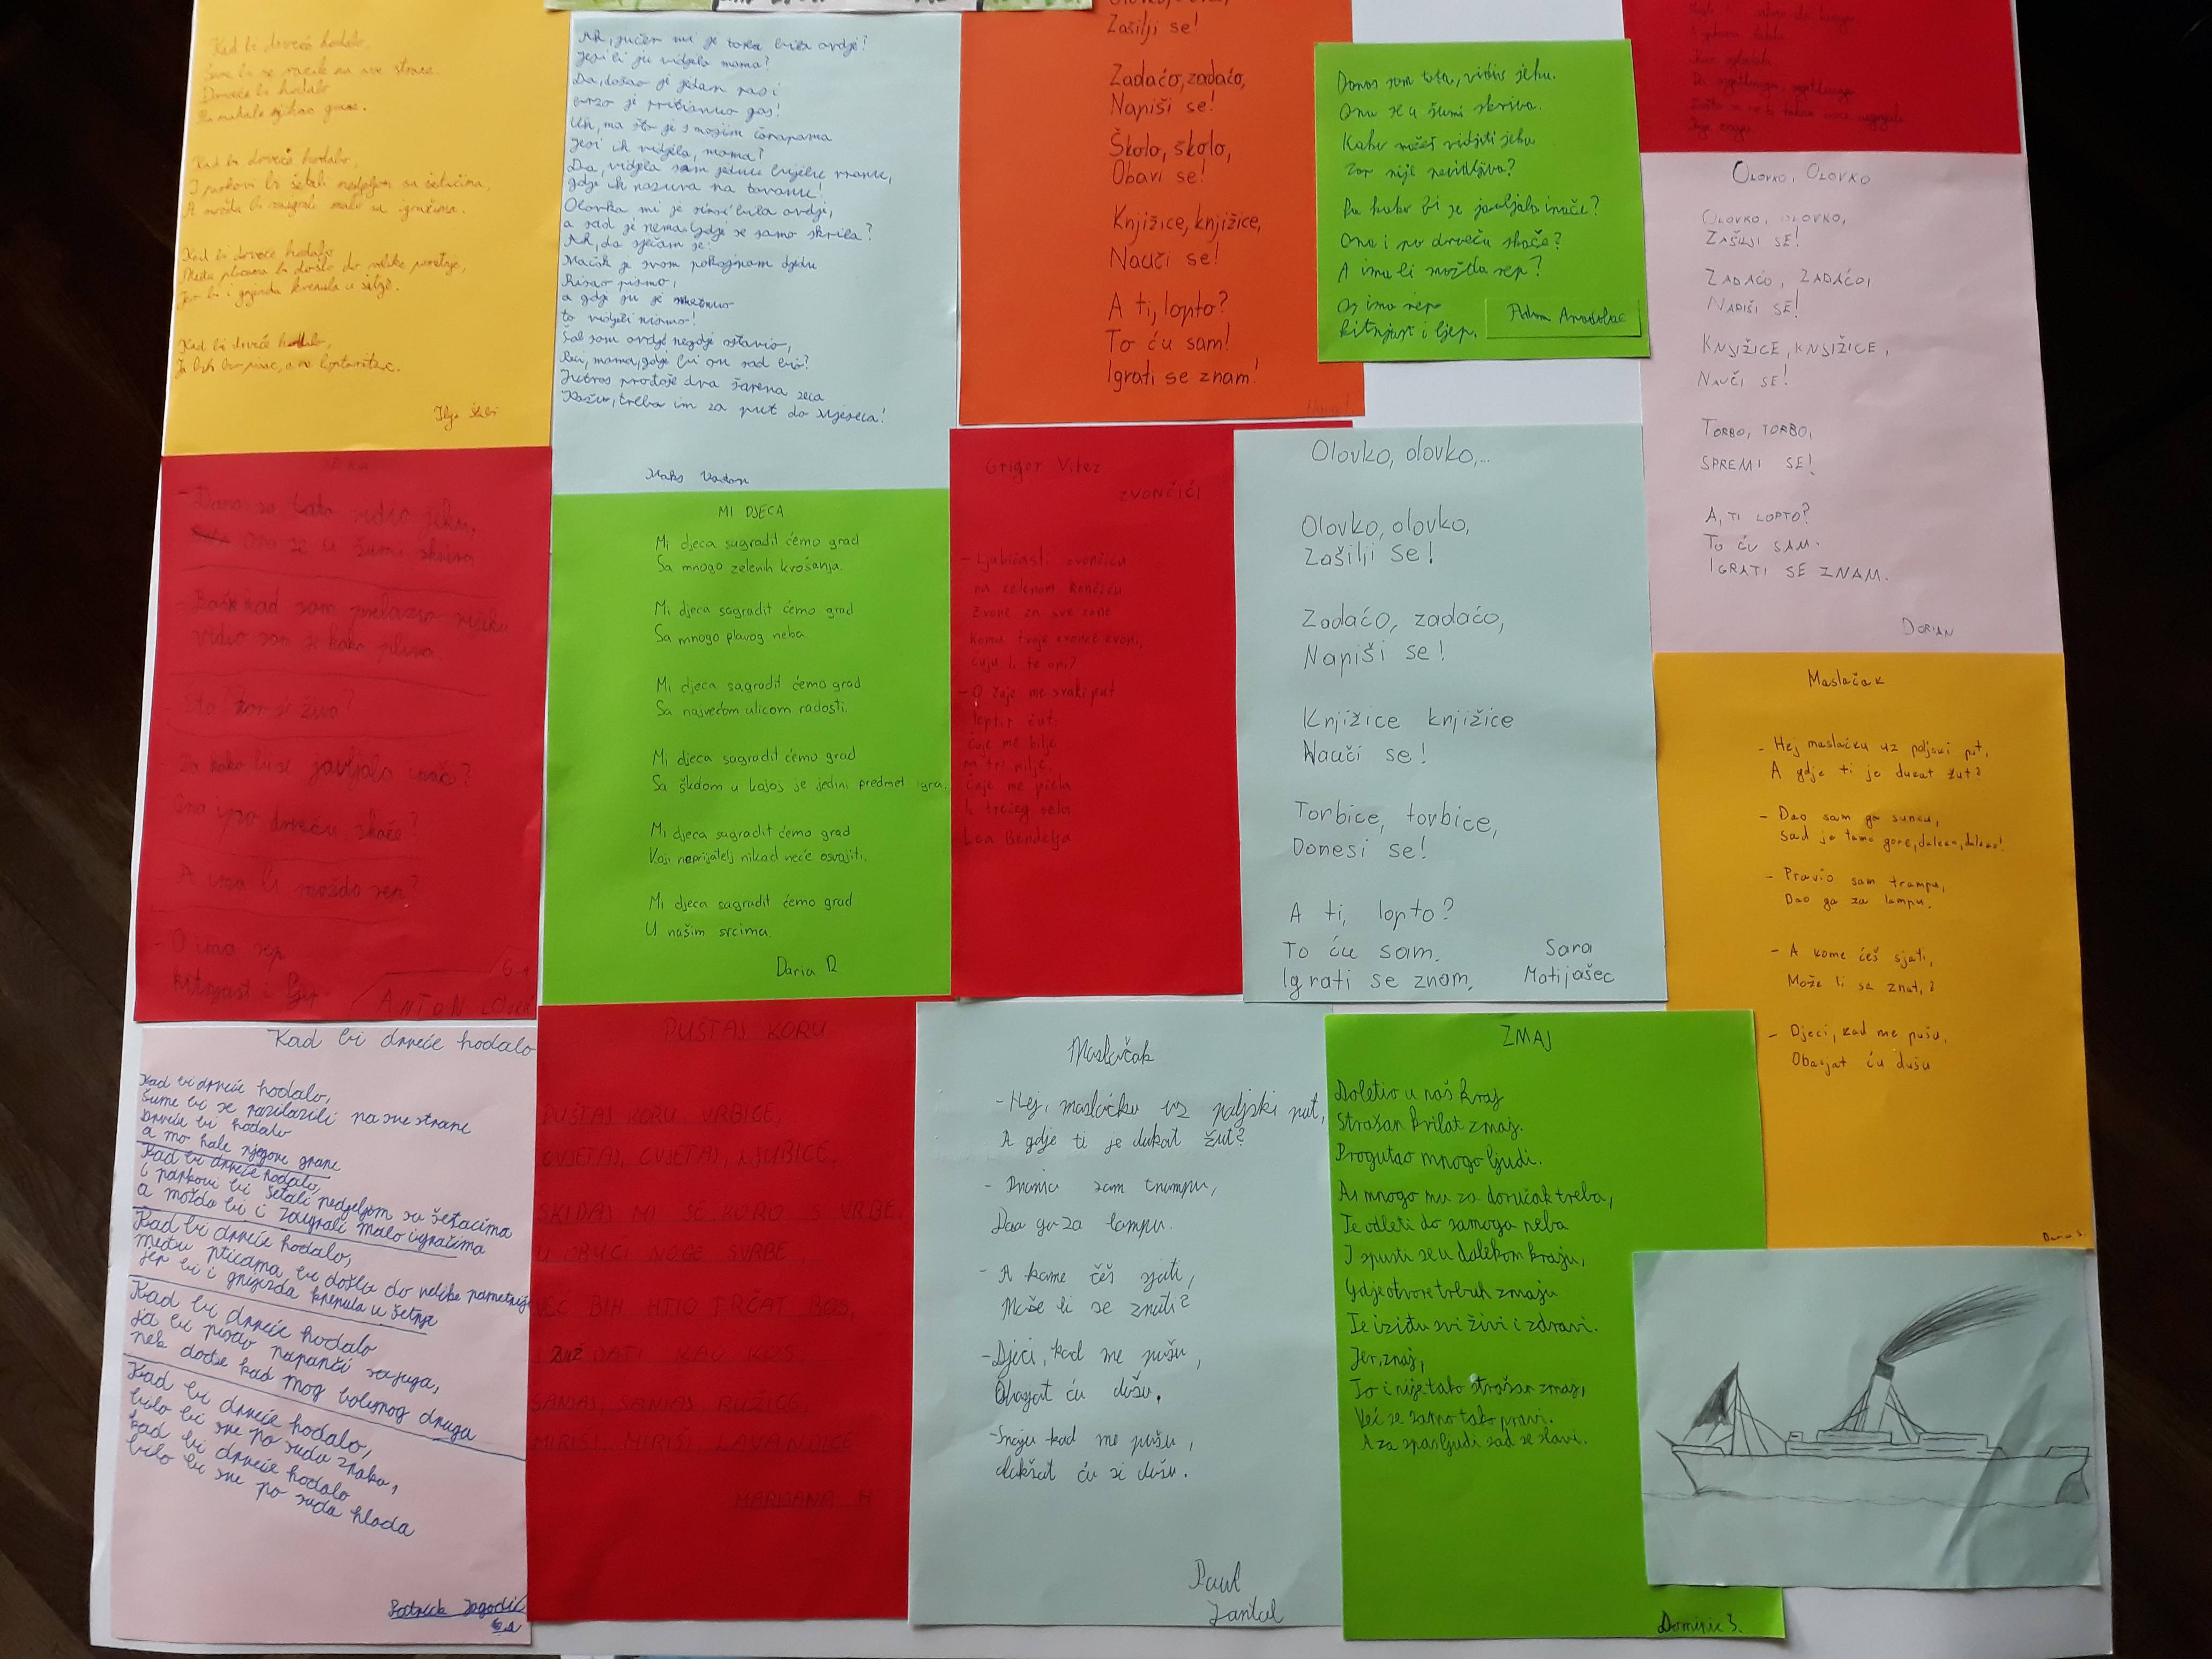 Kad bi drveće hodalo,
Šume bi se na sve strane.
Drveće bi hodalo
Kad bi drveće hodalo,
I parkovi bi šetali nedjeljom sa šetačima,
A možda bi zaigrali malo sa igračima.
Kad bi drveće hodalo
Među pticama bi došlo do velike pometnje,
Jer bi i gnijezda krenula u šetnje.
Kad bi drveće hodalo,
Ah, jučer mi je torba bila ovdje!
Jesi li ju vidjela mama?
Da, došao je jedan
brzo je pritisnuo gas!
Uh, ma što je s mojim čarapama
jesi ih vidjela, mama?
Da, vidjela sam jednu bijelu vranu,
gdje ih nazuva na tavanu!
Olovka mi je sinoć bila ovdje,
a sad je nema! Gdje se samo skrila?
Ah, da sjećam se:
Mačak je svom pokojnom djedu
Pisao pismo,
a gdje ju je metnuo
to vidjeli nismo!
Šal sam ovdje negdje ostavio,
Reci, mama, gdje bi on sad bio?
Jutros prođoše dva šarena zeca
Kažu, treba im za put do mjeseca!
Maks
Zašilji se!
Zadaćo, zadaćo,
Napiši se!
Školo, školo,
Obavi se!
Knjižice, knjižice,
Nauči se!
A ti, lopto?
To ću sam!
Igrati se znam!
Danas sam tata, vidio jeku.
Ona se u šumi skriva.
Kako možeš vidjeti jeku
Zar nije nevidljiva?
Pa kako bi se javljala inače?
Ona i po drveću skače?
A ima li možda rep?
Oj ima rep
kitnjast i lijep.
Adam
OLOVKO, OLOVKO
OLOVKO, OLOVKO,
ZAŠILJI SE!
ZADAĆO, ZADAĆO,
NAPIŠI SE!
KNJIŽICE, KNJIŽICE,
NAUČI SE!
TORBO, TORBO,
SPREMI SE!
A, TI LOPTO?
TO ĆU SAM.
IGRATI SE ZNAM.
DORIAN
- Danas sa tata vidio jeku.
Ona se u šumi skriva
- Baš kad sam prelazio rijeku
vidio sam je kako pliva.
- Šta? Zar je živa?
- Pa kako bi se javljala inače?
Ona i po drveću skače?
- A ima li možda rep?
- O ima rep
kitnjast i lijep
ANTON
MI DJECA
Mi djeca sagradit ćemo grad
Sa mnogo zelenih krošanja.
Mi djeca sagradit ćemo grad
Sa mnogo plavog neba
Mi djeca sagradit ćemo grad
Sa najvećom ulicom radosti.
Mi djeca sagradit ćemo grad
Sa školom u kojoj je jedini predmet igra.
Mi djeca sagradit ćemo grad
Koji neprijatelj nikad neće osvojiti.
Mi djeca sagradit ćemo grad
U našim srcima.
Daria R
Grigor Vitez
ZVONČIĆI
- Ljubičasti zvončiću
na zelenom končiću
Zvone za sve zone
Komu tvoje zvonce zvoni,
čuju li te oni?
- O čuje me svaki put
leptir žut.
Čuje me bilje
na tri milje.
Čuje me pčela
Iz trećeg sela
Lea Bendelja
Olovko, olovko,...
Olovko, olovko,
Zašilji se!
Zadaćo, zadaćo,
Napiši se!
Knjižice knjižice
Nauči se!
Torbice, torbice,
Donesi se!
A ti, lopto?
To ću sam.
Igrati se znam.
Sara
Matijašec
Maslačak
- Hej maslačku uz poljski put,
A gdje ti je dukat žut?
- Dao sam ga suncu,
Sad je tamo gore, daleko, daleko!
- Pravio sam trampu,
Dao ga za lampu.
- A kome ćeš sjati,
Može li se znat,?
- Djeci, kad me pušu,
Obasjat ću dušu
Kad bi drveće hodalo
Kad bi drveće hodalo,
šume bi se razilazili na sve strane
drveće bi hodalo
a mo hale njegove grane
Kad bi drveće hodalo,
i parkovi bi šetali nedjeljom sa šetacima
a možda bi i zaigrali malo igračima
Kad bi drveće hodalo,
među pticama bi došlo do velike pometnje
jer bi i gnijezda krenula u šetnje
Kad bi drveće hodalo
ja bi pisao sa juga,
nek dođe kod mog bolesnog druga
Kad bi drveće hodalo,
bilo bi sve po sudu zraka,
kad bi drveće hodalo
bilo bi sve po suda hlada
Patrick Jagodić
PUŠTAJ KORU
PUŠTAJ KORU, VRBICE,
CVJETAJ, CVJETAJ, LJUBICE.
SKIDAJ MI SE KORO S VRBE,
U OBUĆI NOGE SVRBE,
VEĆ BIH HTIO TRČAT BOS,
I ZVIŽDATI KAO KOS
SANJAJ, SANJAJ RUŽICE,
MIRIŠI, MIRIŠI, LAVANDICE
MARIJANA H
Maslačak
- Hej, maslačku uz poljski put,
A gdje ti je dukat žut?
- Pravio sam trampu,
Dao ga za lampu.
- A kome ćeš sjati,
Može li se znati?
- Djeci, kad me pušu,
Obasjat ću dušu.
- Snaju kad me pušu,
ću si dušu.
Paul
Jantol
ZMAJ
Doletio u naš kraj
Strašan krilat zmaj.
Progutao mnogo ljudi.
Al mnogo mu za doručak treba,
Te odleti do samoga neba
I spusti se u dalekom kraju,
Gdje otvore trbuh zmaju
Te iziđu svi živi i zdravi.
Jer, znaj,
To i nije tako strašan zmaj,
Već se samo tako pravi.
A za spas ljudi sad se slavi.
Dominic Š.